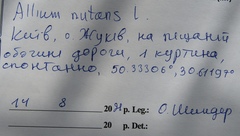 Allium nutans L.
Київ, о. Жуків, на піщаній
обочині дороги, 1 куртина,
спонтанно, 50.33306°, 30.61197°
14 8 20 р. Leg.: О. Шиндер
20 р. Det.: